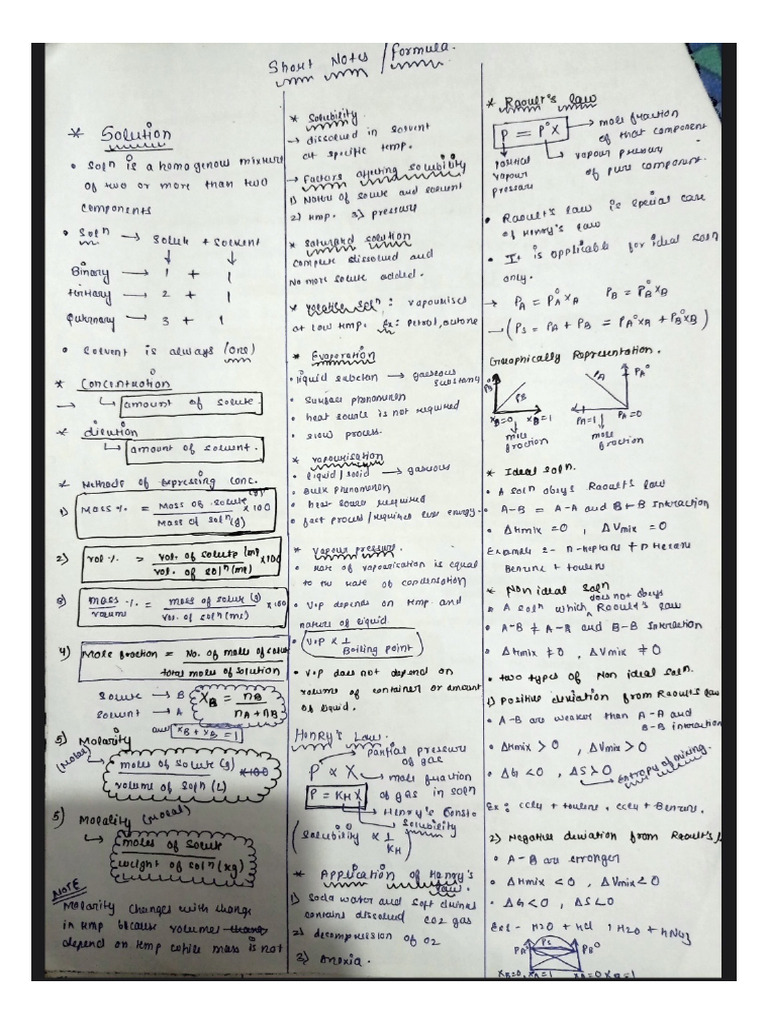 Short Notes / Formula.
* Solution
• Solⁿ is a homogenous mixture
of two or more than two
components
• Solⁿ → Solute + Solvent
Binary → 1 + 1
→ 2 + 1
→ 3 + 1
• Solvent is always (one)
* Concentration
→ ↳ amount of solute.
* dilution
↳ amount of solvent.
* Methods of expressing conc.
1) Mass % = Mass of solute (g) / Mass of solⁿ (g) × 100
2) vol % = vol. of solute (ml) / vol. of solⁿ (ml) × 100
3) mass / volume % = mass of solute (g) / vol. of solⁿ (ml) × 100
4) Mole fraction = No. of moles of solute / total moles of solution
Solute → B
Solvent → A
X_B = n_B / n_A + n_B
and
5) Molarity
(Molar)
moles of solute (g) / volume of solⁿ (L) × 100
5) Molality (Molal)
moles of solute / weight of solⁿ (kg)
NOTE
Molarity changes with change
in temp because volume change
depend on temp while mass is not
* Solubility
→ dissolved in solvent
at specific temp.
→ factors affecting solubility
1) Nature of solute and solvent
2) temp. 3) pressure
* Saturated solution
complete dissolved and
No more solute added.
* volatile solⁿ : vapourises
at low temp. Ex: Petrol, acetone
* Evaporation
• liquid → gaseous
• Surface phenomenon
• heat source is not required
• slow process.
* vapourisation
• liquid / solid → gaseous
• Bulk phenomenon
• heat source required
• fast process / requires less energy.
* Vapour pressure.
• Rate of vapourisation is equal
to the rate of condensation
• V.P depends on temp. and
nature of liquid.
• V.P ∝ 1 / Boiling point
• V.P does not depend on
volume of container or amount
of liquid.
Henry's Law.
partial pressure
of gas
P ∝ X → mole fraction
of gas in solⁿ
P = K_H X
Henry's
Solubility
(Solubility ∝ 1 / K_H)
* Application of Henry's
law.
1) Soda water and soft drinks
contains dissolved CO2 gas
2) decompression of O2
3) Anoxia.
* Raoult's law
P = P°X → mole fraction
of that component
partial
vapour
pressure
vapour pressure
of pure component.
• Raoult's law is special case
of Henry's law
• It is applicable for ideal solⁿ
only.
→ P_A = P_A° X_A P_B = P_B° X_B
→ (P_S = P_A + P_B = P_A° X_A + P_B° X_B)
Graphically Representation.
P_B°
P_B
X_B=0 X_B=1
mole
fraction
P_A
P_A°
P_A=1 P_A=0
mole
fraction
* Ideal solⁿ.
• A solⁿ obeys Raoult's law
• A-B = A-A and B-B Interaction
• ΔHmix = 0 , ΔVmix = 0
Example :- n-heptane + n Hexane
Benzene + toulene
* Non ideal solⁿ
does not obeys
• A solⁿ which ^ Raoult's law
• A-B ≠ A-A and B-B Interaction
• ΔHmix ≠ 0 , ΔVmix ≠ 0
• two types of Non ideal solⁿ.
1) Positive deviation from Raoult's law
• A-B are weaker than A-A and
B-B interaction
• ΔHmix > 0 , ΔVmix > 0
• ΔG < 0 , ΔS > 0
→ entropy of mixing.
Ex: CCl4 + toulene , CCl4 + Benzene.
2) Negative deviation from Raoult's
• A-B are stronger
• ΔHmix < 0 , ΔVmix < 0
• ΔG < 0 , ΔS < 0
Ex:- H2O + HCl , H2O +
P_A°
P_S
P_B°
X_B=0, X_A=1
X_A=0 X_B=1